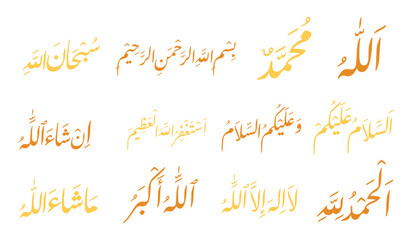 اَللّٰهُ
مُحَمَّدٌ
بِسْمِ اللَّهِ الرَّحْمٰنِ الرَّحِيْمِ
سُبْحَانَ اللَّهِ
اَلسَّلَامُ عَلَيْكُمْ
وَعَلَيْكُمُ السَّلَامُ
اَسْتَغْفِرُ اللهَ الْعَظِيْمَ
اِنْ شَاءَ اللّٰهُ
اَلْحَمْدُ لِلّٰهِ
لَا اِلٰهَ اِلَّا اللّٰهُ
اَللّٰهُ أَكْبَرُ
مَا شَاءَ اللّٰهُ